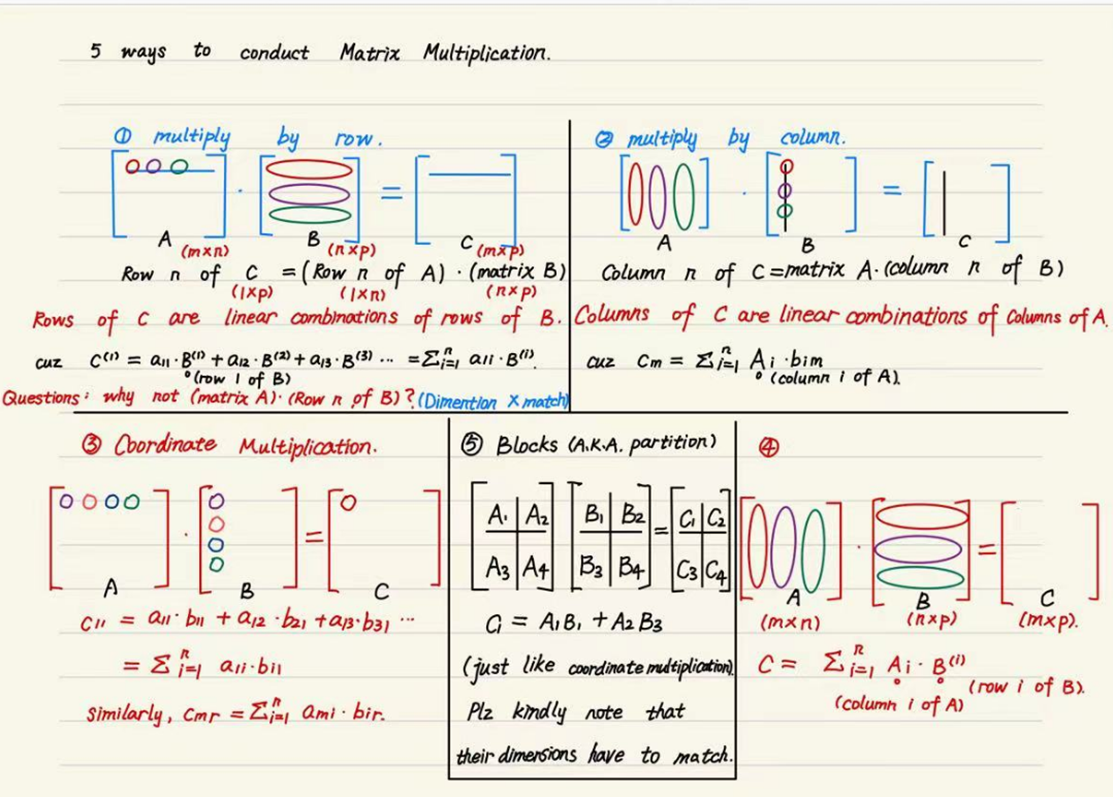 5 ways to conduct Matrix Multiplication.
① multiply by row.
A (m×n)
B (n×p)
C (m×p)
Row n of C = (Row n of A) · (matrix B)
(1×p) (1×n) (n×p)
Rows of C are linear combinations of rows of B.
cuz C⁽¹⁾ = a₁₁·B⁽¹⁾ + a₁₂·B⁽²⁾ + a₁₃·B⁽³⁾ ... = Σⁿᵢ₌₁ a₁ᵢ·B⁽ⁱ⁾.
(row 1 of B)
Questions: why not (matrix A)·(Row n of B)? (Dimention × match)
② multiply by column.
A
B
C
Column n of C = matrix A·(column n of B)
Columns of C are linear combinations of Columns of A.
cuz Cm = Σⁿᵢ₌₁ Aᵢ·bim
(column i of A).
③ Coordinate Multiplication.
A
B
C
C₁₁ = a₁₁·b₁₁ + a₁₂·b₂₁ + a₁₃·b₃₁ ...
= Σⁿᵢ₌₁ a₁ᵢ·bᵢ₁
Similarly, Cmr = Σⁿᵢ₌₁ ami·bir.
⑤ Blocks (A.K.A. partition)
A₁ A₂ B₁ B₂ = C₁ C₂
A₃ A₄ B₃ B₄ C₃ C₄
C₁ = A₁B₁ + A₂B₃
(just like coordinate multiplication).
Plz kindly note that
their dimensions have to match.
④
A
(m×n)
B
(n×p)
C
(m×p).
C = Σⁿᵢ₌₁ Aᵢ · B⁽ⁱ⁾
(row i of B).
(column i of A)